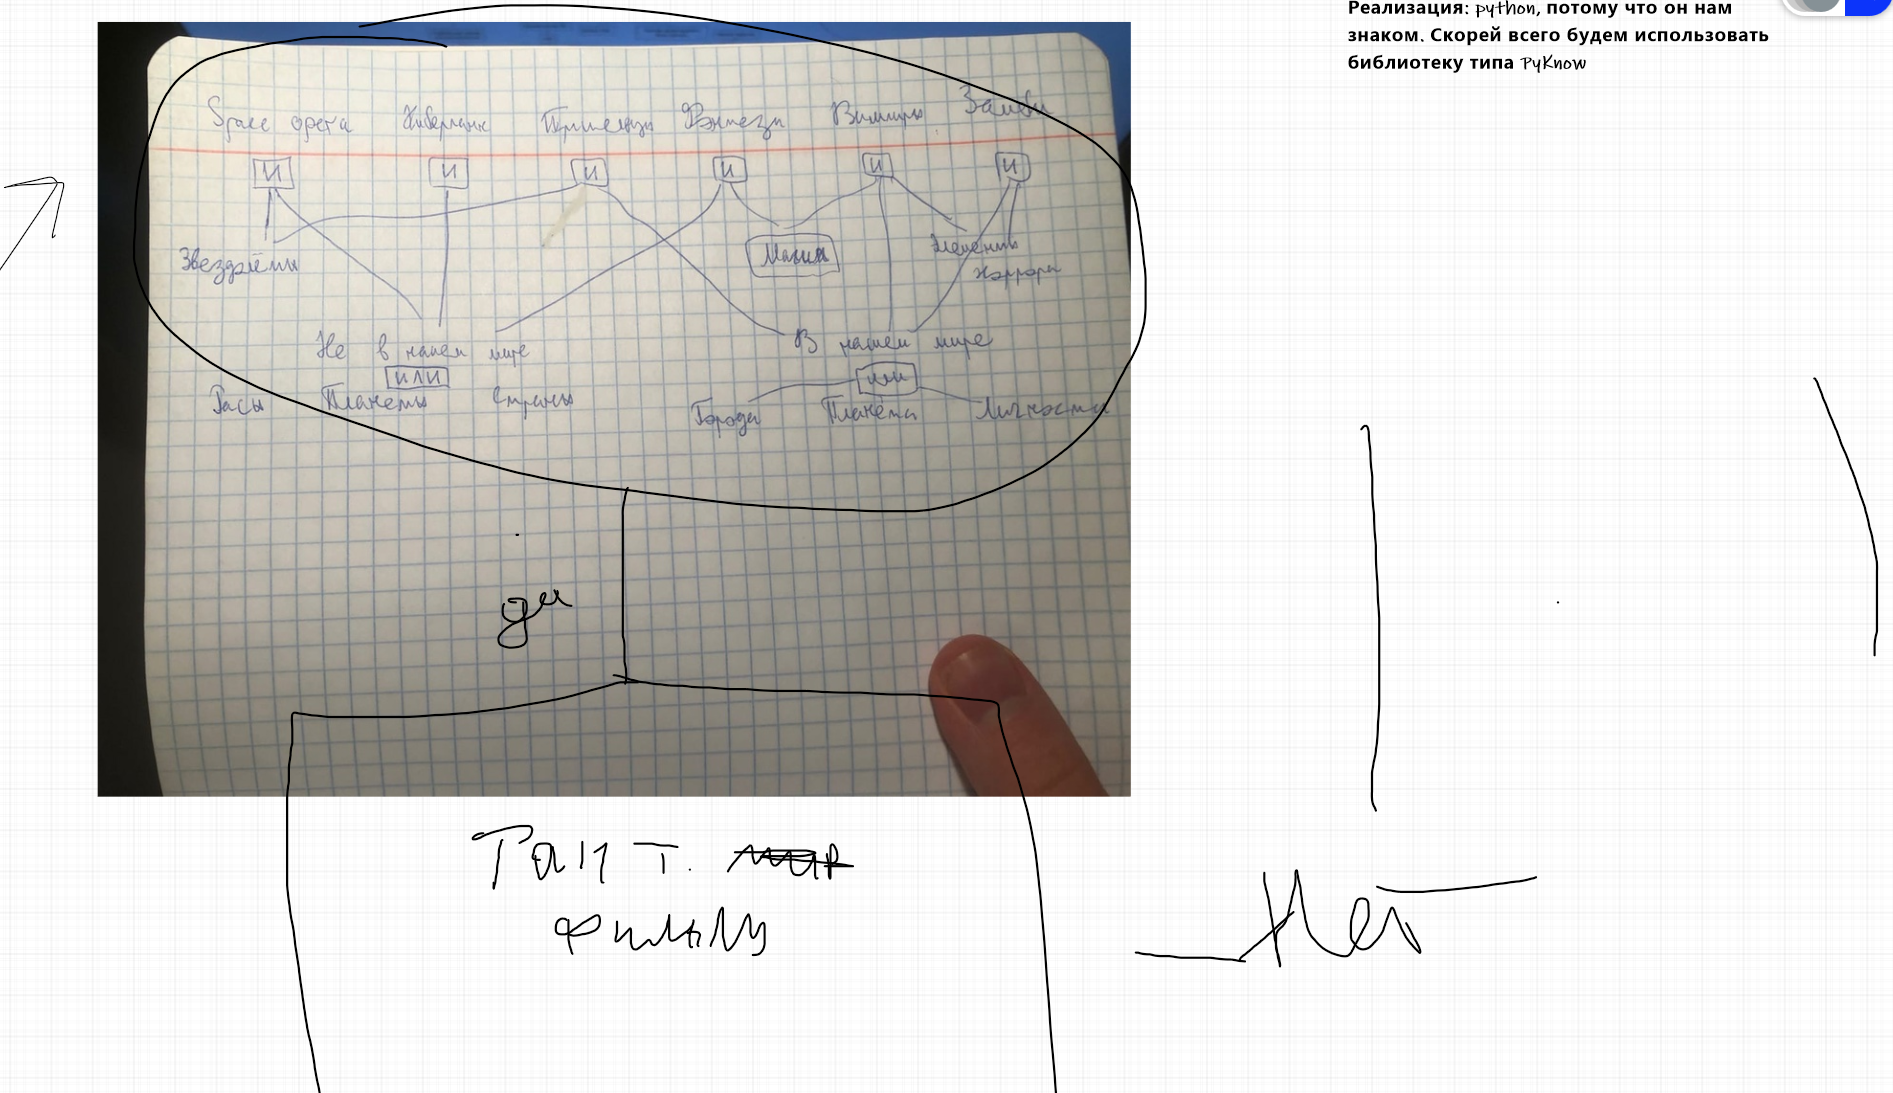 Реализация: python, потому что он нам
знаком. Скорей всего будем использовать
библиотеку типа PyKnow
Space opera Киберпанк Пришельцы Фэнтези Вампиры Зомби
И И И И И И
Звездолёты Магия Элементы
хоррора
Не в нашем мире В нашем мире
ИЛИ или
Расы Планеты Страны Города Планета Личности
Тип т.
фильмы
Нет